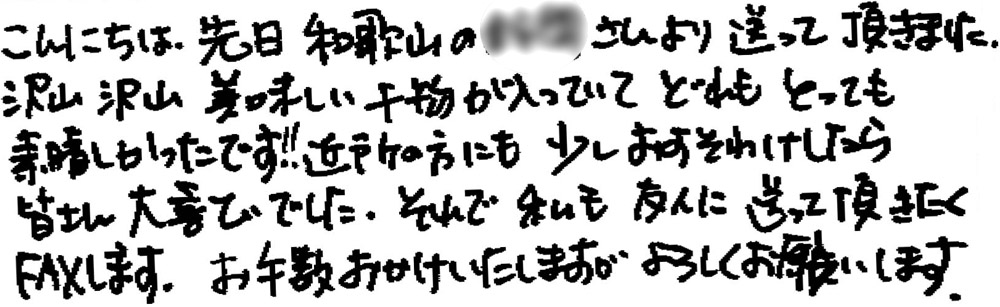 こんにちは。先日 和歌山の さんより 送って 頂きました。
沢山 沢山 美味しい 干物が入っていて どれも とっても
素晴しかったです!!近所の方にも 少し おすそわけしたら
皆さん 大喜びでした。それで 私も 友人に 送って頂きたく
FAXします。お手数おかけいたしますが よろしくお願いします。